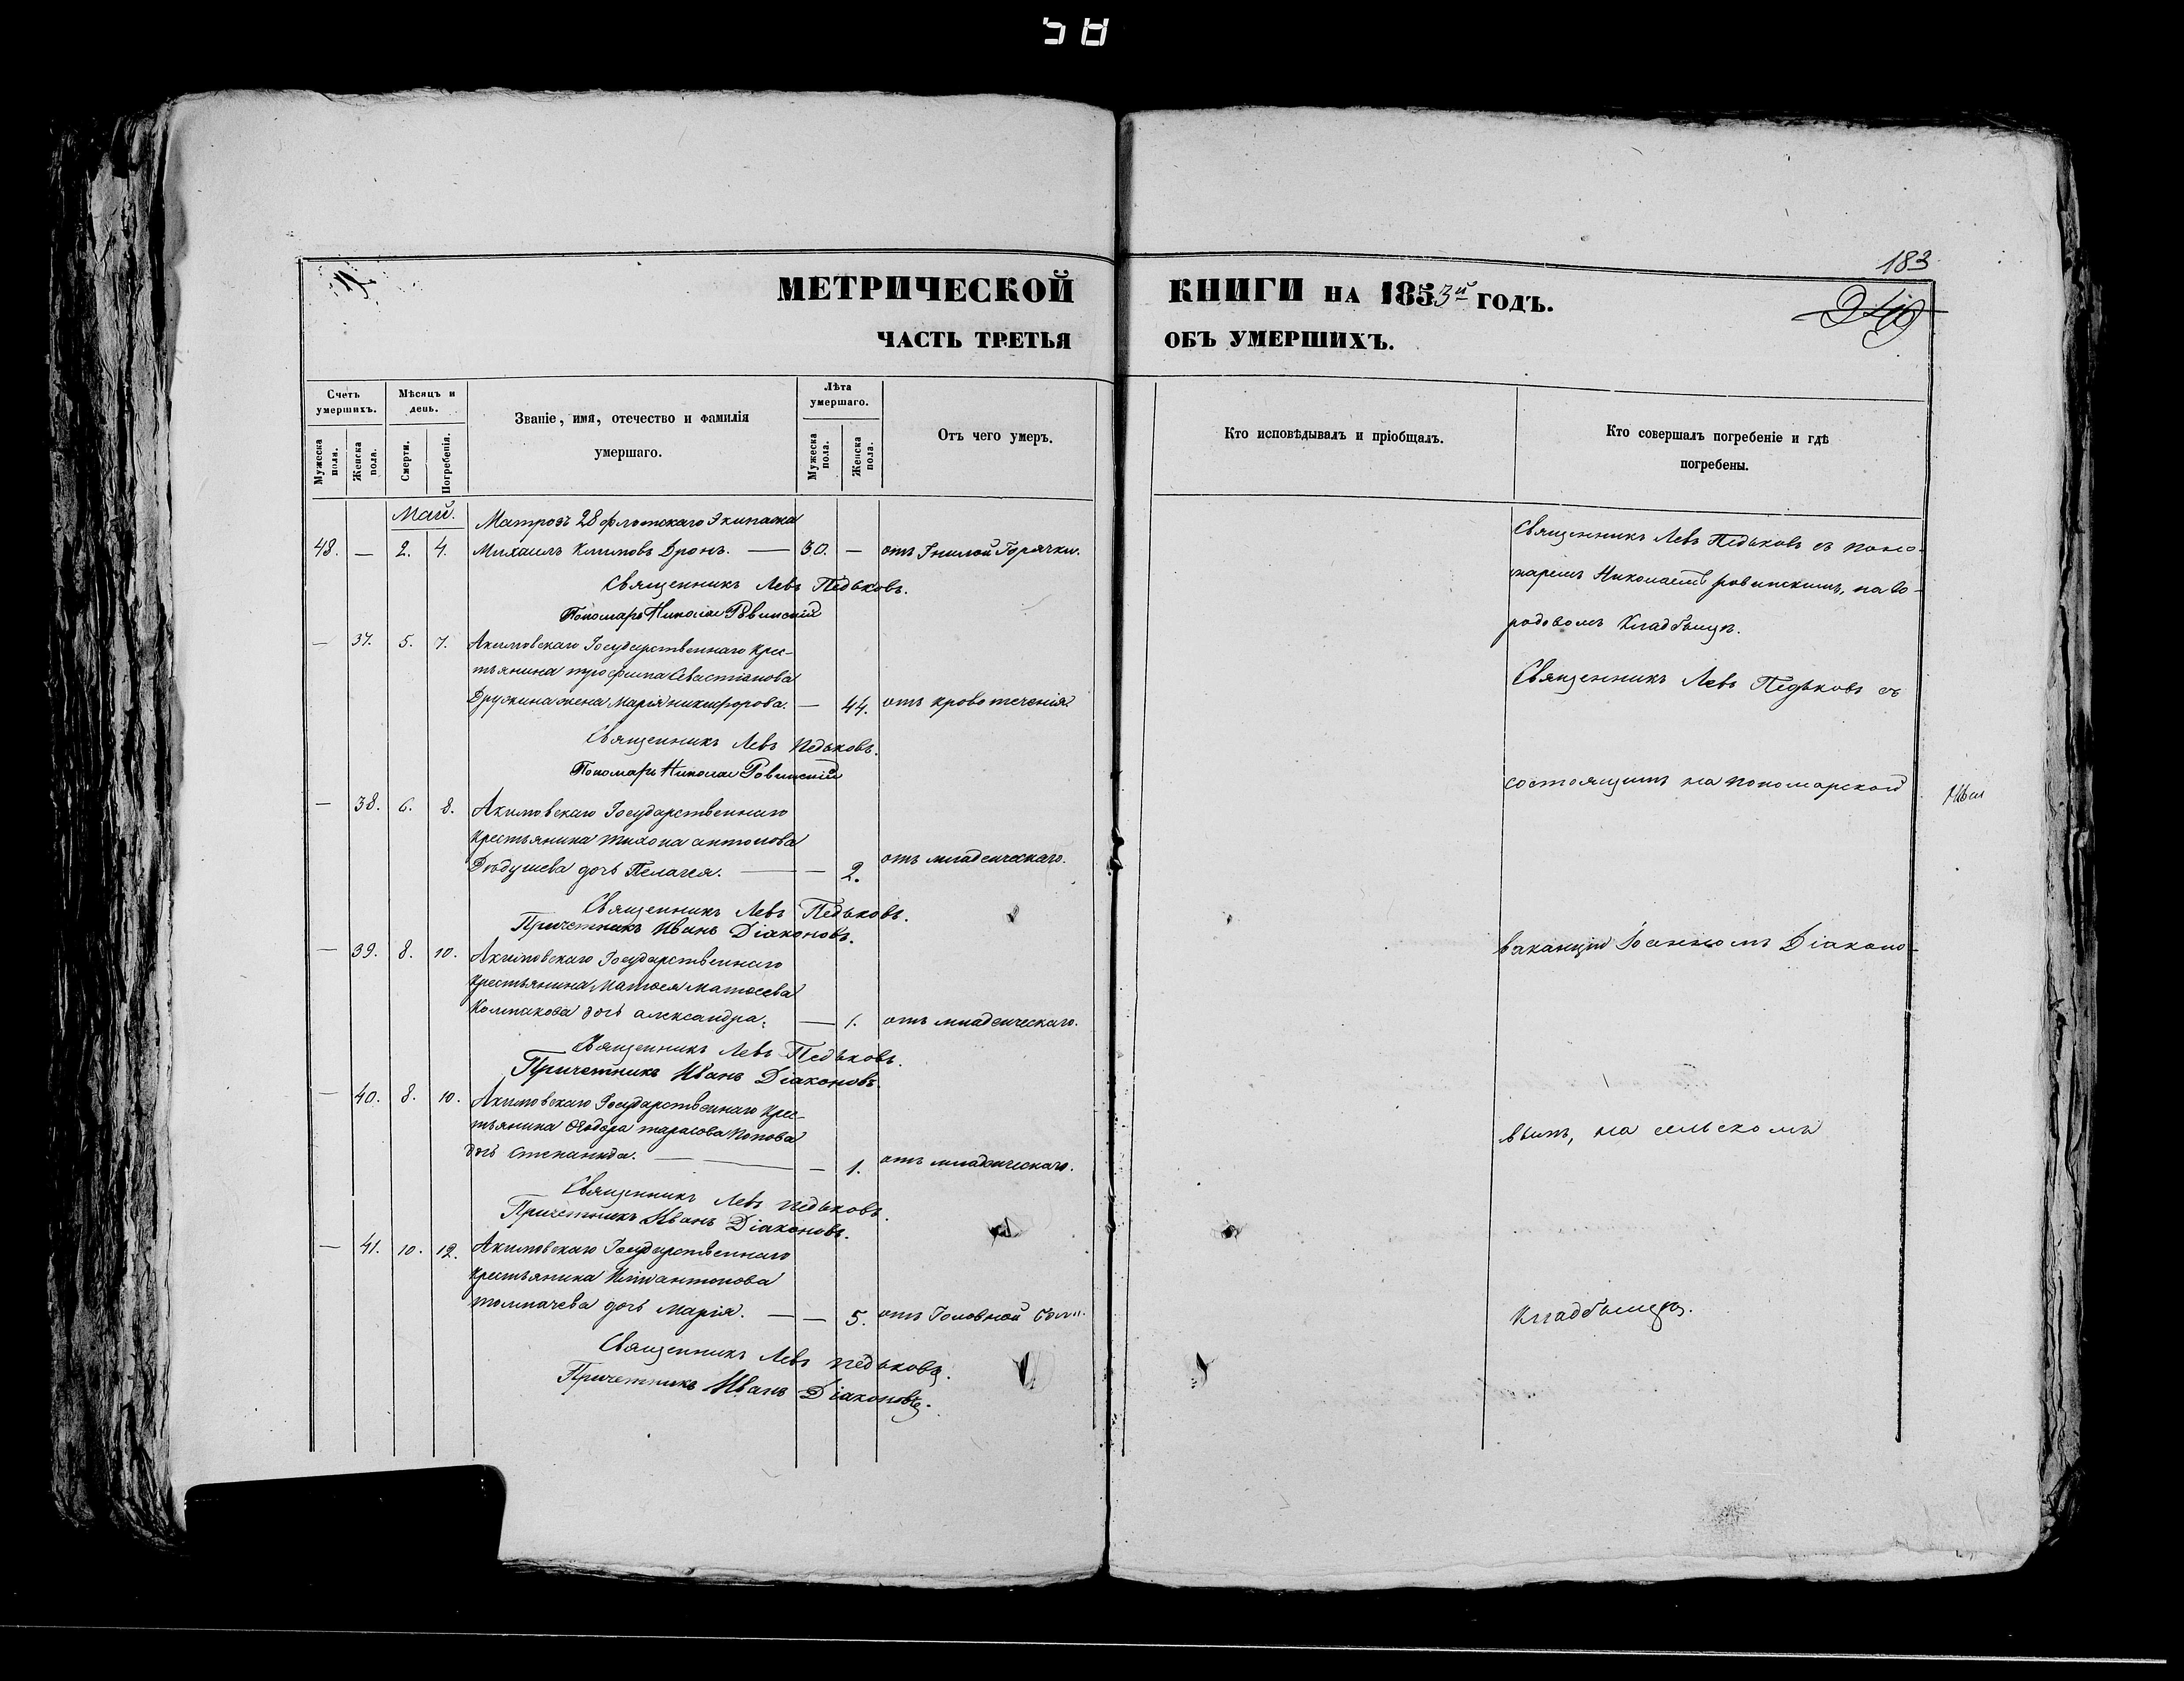 58
183
МЕТРИЧЕСКОЙ КНИГИ НА 1853й ГОДЪ.
ЧАСТЬ ТРЕТЬЯ ОБЪ УМЕРШИХЪ.
Счетъ умершихъ.
Мужеска пола.
Женска пола.
Мѣсяцъ и день.
Смерти.
Погребенія.
Званіе, имя, отечество и фамилія
умершаго.
Лѣта умершаго.
Мужеска пола.
Женска пола.
Отъ чего умеръ.
Кто исповѣдывалъ и пріобщалъ.
Кто совершалъ погребеніе и гдѣ
погребены.
Май.
Матрозъ 28 флотскаго Экипажа
48. — 2. 4. Михаилъ Климовъ Дронъ. — 30. — отъ Гнилой Горячки.
Священникъ Левъ Педьковъ.
Пономарь Николай Ровинскій
— 37. 5. 7. Акимовскаго Государственнаго Крес-
тьянина трофима Севастіанова
Дружина жена Марія никифорова. — 44. отъ кровотеченія
Священникъ Левъ Педьковъ.
Пономарь Николай Ровинскій
— 38. 6. 8. Акимовскаго Государственнаго
Крестьянина тихона антонова
Дѣдушева дочь Пелагея. — — 2. отъ младенческаго.
Священникъ Левъ Педьковъ.
Причетникъ Иванъ Діаконовъ.
— 39. 8. 10. Акимовскаго Государственнаго
Крестьянина Матвея матвеева
Колпакова дочь александра. — 1. отъ младенческаго.
Священникъ Левъ Педьковъ.
Причетникъ Иванъ Діаконовъ
— 40. 8. 10. Акимовскаго Государственнаго Крес-
тьянина Ѳеодора тарасова Попова
дочь Степанида. — — 1. отъ младенческаго.
Священникъ Левъ Педьковъ.
Причетникъ Иванъ Діаконовъ.
— 41. 10. 12. Акимовскаго Государственнаго
Крестьянина антонова
толпачева дочь Марія. — — 5. отъ Головной
Священникъ Левъ Педьковъ.
Причетникъ Иванъ Діаконовъ.
Священникъ Левъ Педьковъ съ поно-
маремъ Николаемъ ровинскимъ, на Го-
родовомъ Кладбищѣ.
Священникъ Левъ Педьковъ съ
состоящимъ на пономарской
ваканціи Іоанномъ Діаконо-
вымъ, на сельскомъ
Кладбищѣ.